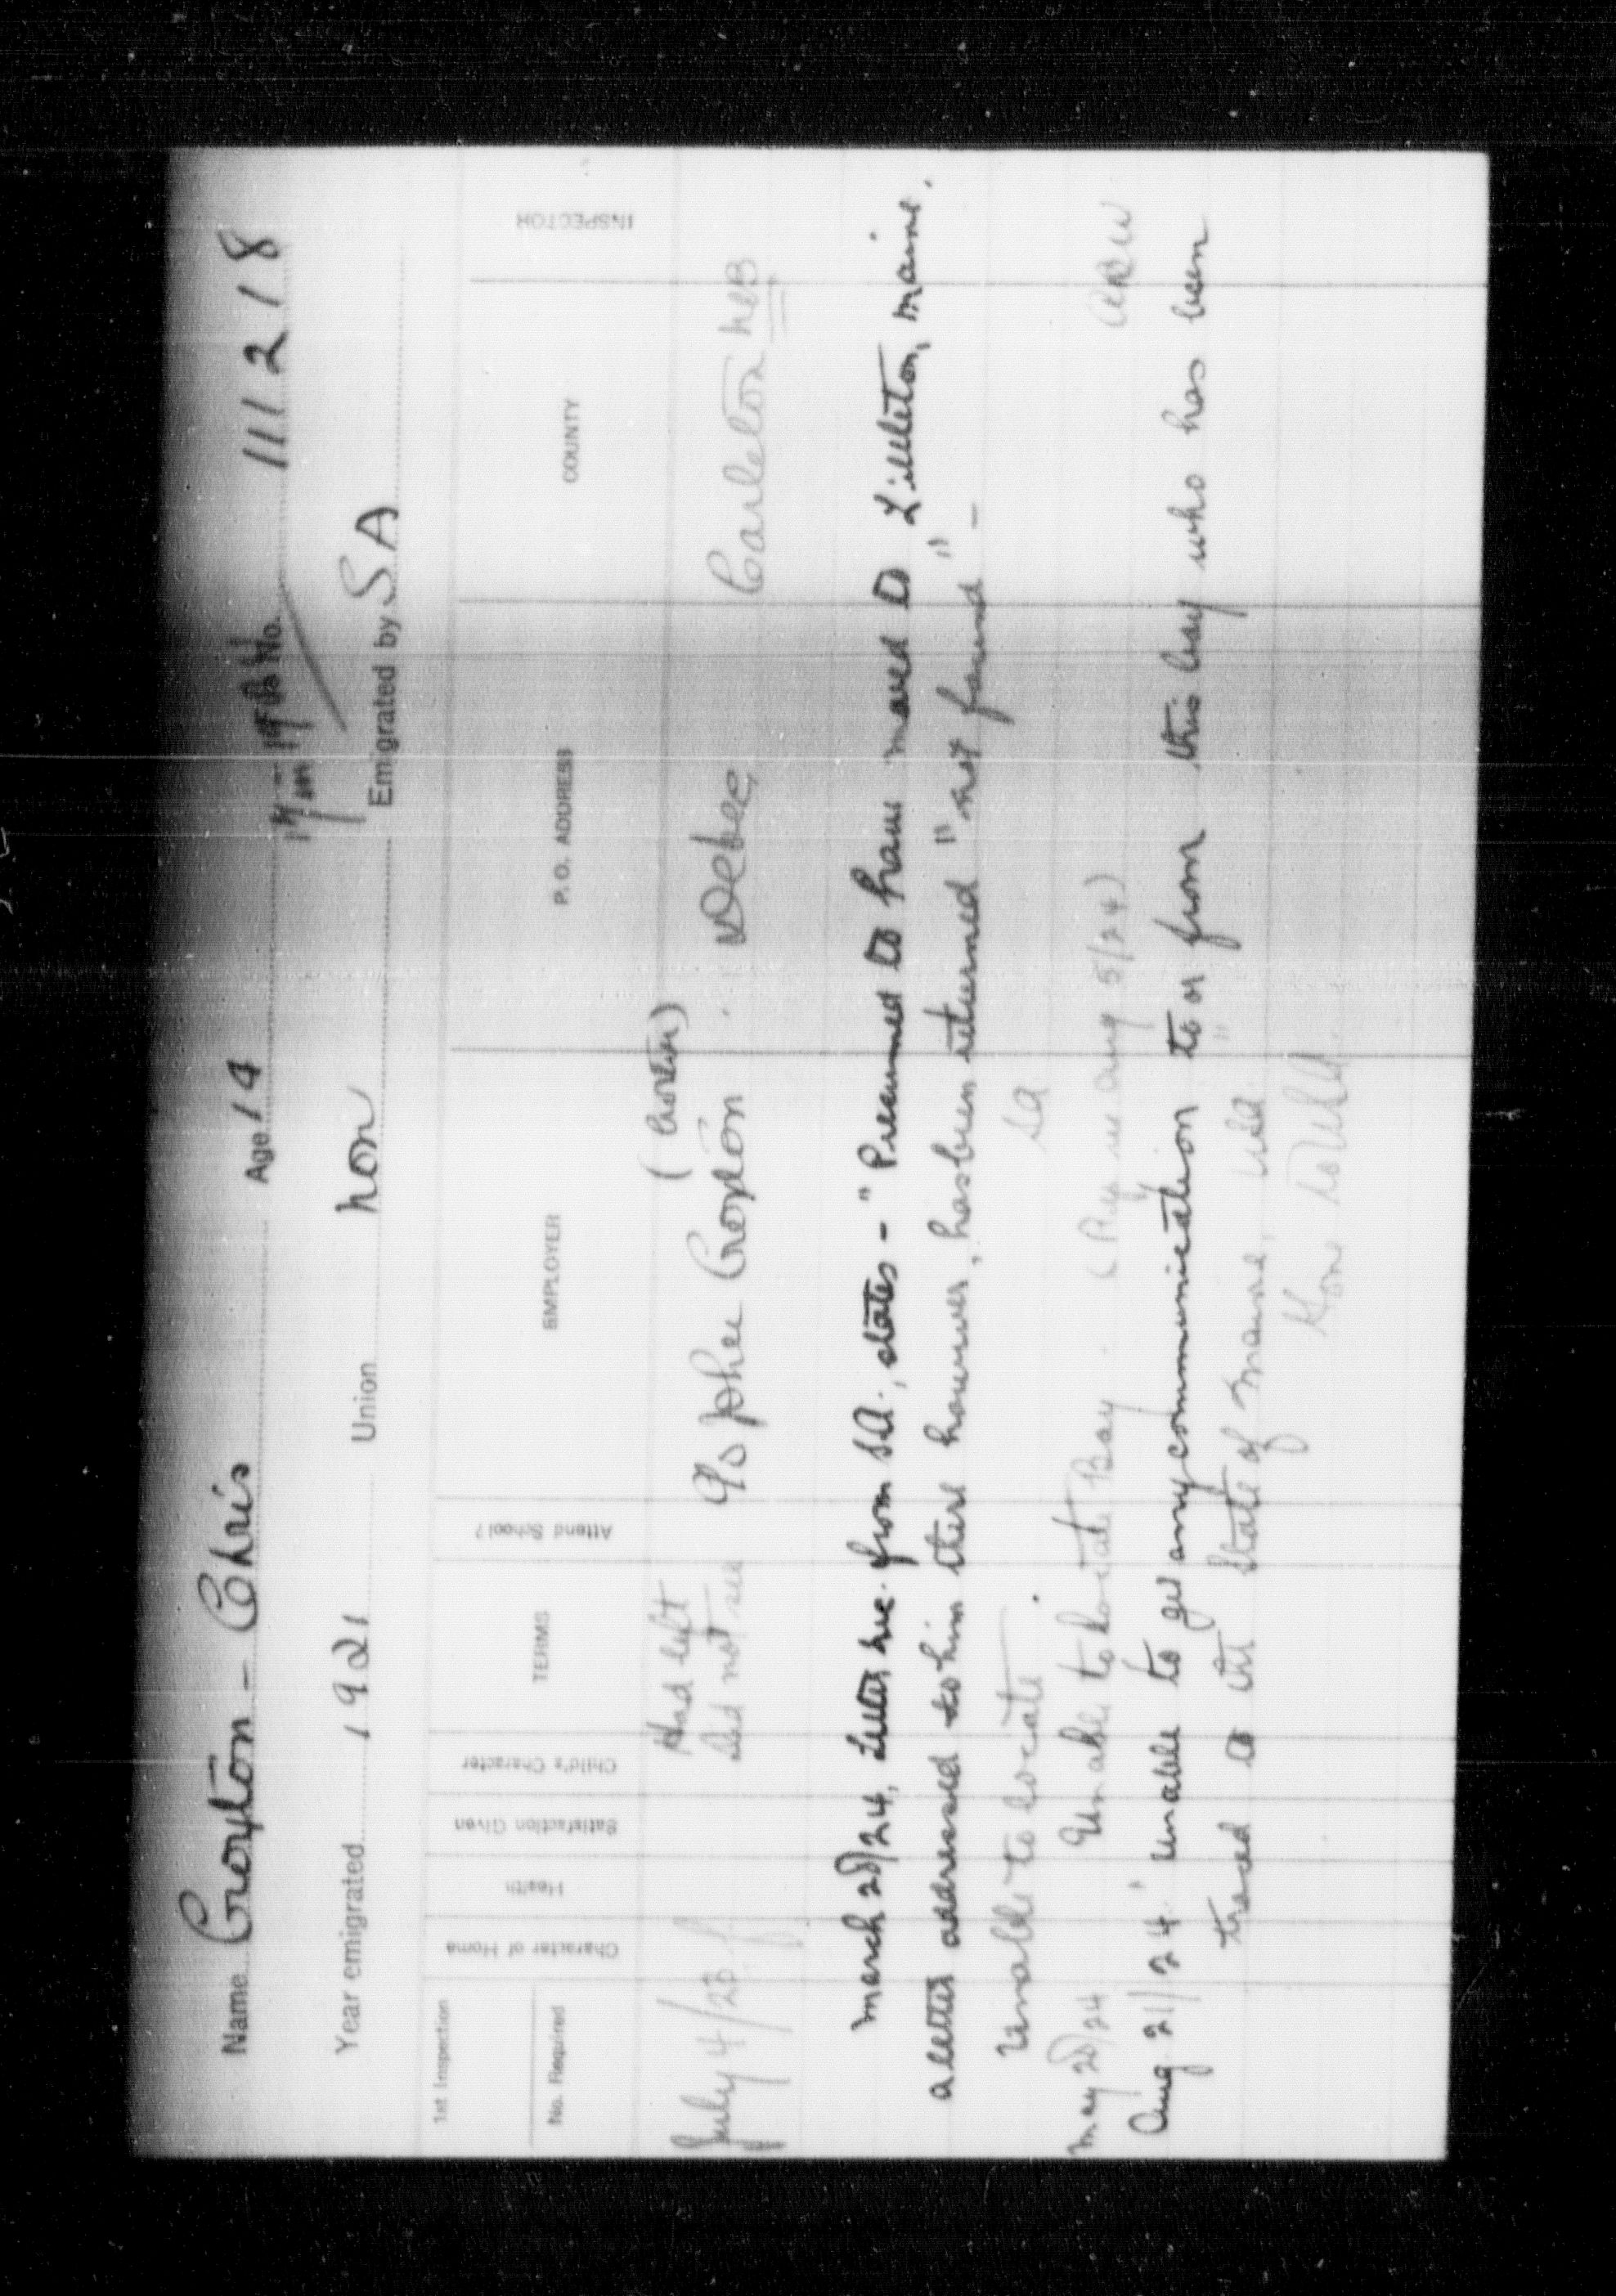 Name Croxton - Chris Age 14 No. 111218
Year emigrated 1921 Union Non Emigrated by S A
1st Inspection
No. Required
Character of Home
Health
Satisfaction Given
Child's Character
TERMS
Attend School?
EMPLOYER
P. O. ADDRESS
COUNTY
INSPECTOR
Had left
July 4/23 Did not see c/o John Croxton Debec Carleton NB
March 28/24, Letter rec. from S.A., states - "Presumed to have moved to Littleton, Maine.
a letter addressed to him there however, has been returned "not found" -
Unable to locate. SA
May 28/24 Unable to locate Boy. Aug 5/24)
Aug 21/24 Unable to get any communication to or from this boy who has been
traced to the State of Maine, USA
Gone to USA